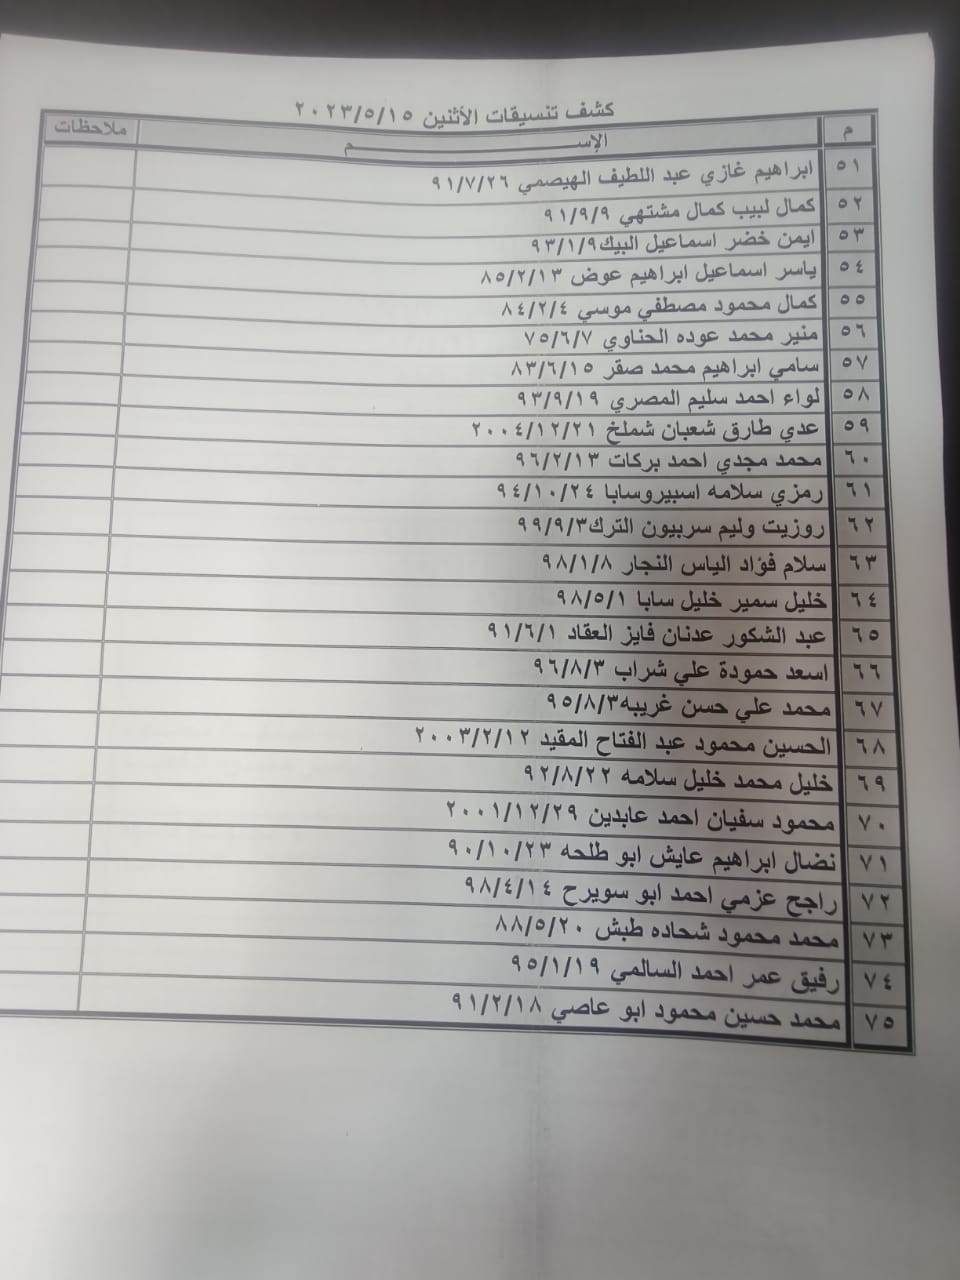 كشف تنسيقات الأثنين ٢٠٢٣/٥/١٥
م الإســـــــــم ملاحظات
٥١ ابراهيم غازي عبد اللطيف الهيصمي ٩١/٧/٢٦
٥٢ كمال لبيب كمال مشتهي ٩١/٩/٩
٥٣ ايمن خضر اسماعيل البيك٩٣/١/٩
٥٤ ياسر اسماعيل ابراهيم عوض ٨٥/٢/١٣
٥٥ كمال محمود مصطفي موسي ٨٤/٢/٤
٥٦ منير محمد عوده الحناوي ٧٥/٦/٧
٥٧ سامي ابراهيم محمد صقر ٨٣/٦/١٥
٥٨ لواء احمد سليم المصري ٩٣/٩/١٩
٥٩ عدي طارق شعبان شملخ ٢٠٠٤/١٢/٢١
٦٠ محمد مجدي احمد بركات ٩٦/٢/١٣
٦١ رمزي سلامه اسبيروسابا ٩٤/١٠/٢٤
٦٢ روزيت وليم سربيون الترك٩٩/٩/٣
٦٣ سلام فؤاد الياس النجار ٩٨/١/٨
٦٤ خليل سمير خليل سابا ٩٨/٥/١
٦٥ عبد الشكور عدنان فايز العقاد ٩١/٦/١
٦٦ اسعد حمودة علي شراب ٩٦/٨/٣
٦٧ محمد علي حسن غريبه٩٥/٨/٣
٦٨ الحسين محمود عبد الفتاح المقيد ٢٠٠٣/٢/١٢
٦٩ خليل محمد خليل سلامه ٩٢/٨/٢٢
٧٠ محمود سفيان احمد عابدين ٢٠٠١/١٢/٢٩
٧١ نضال ابراهيم عايش ابو طلحه ٩٠/١٠/٢٣
٧٢ راجح عزمي احمد ابو سويرح ٩٨/٤/١٤
٧٣ محمد محمود شحاده طبش ٨٨/٥/٢٠
٧٤ رفيق عمر احمد السالمي ٩٥/١/١٩
٧٥ محمد حسين محمود ابو عاصي ٩١/٢/١٨